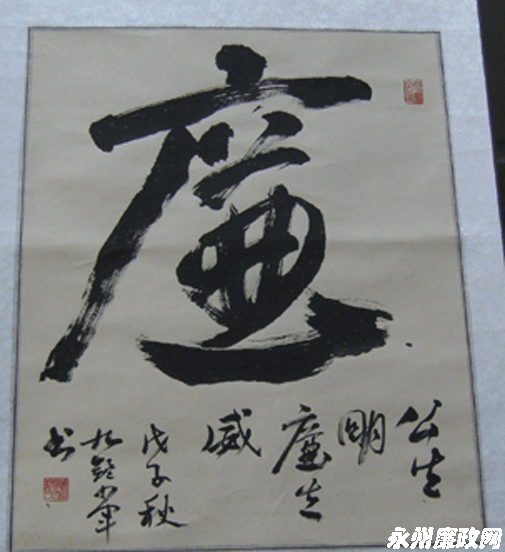 廉
公生
明
廉生
威
戊子秋
书
永州廉政网